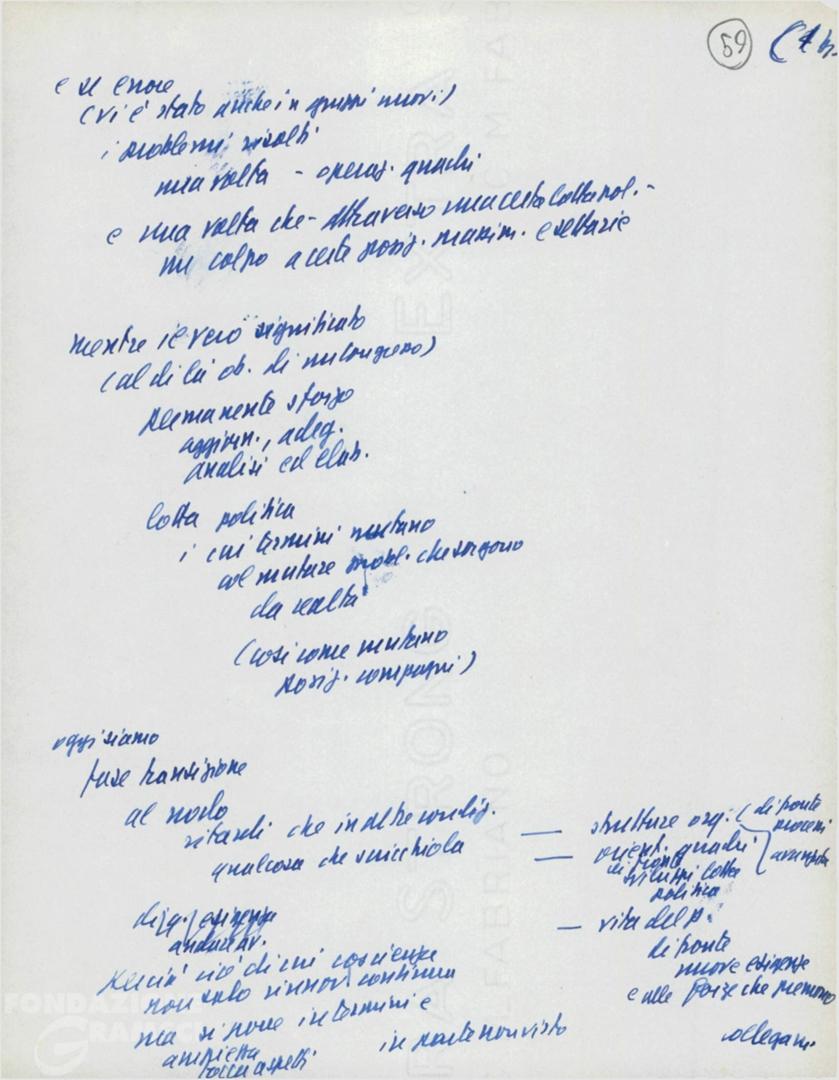 59
e se errore
(vi è stato anche in gruppi nuovi)
i problemi risolti
una volta - operaz. quadri
e una volta che - attraverso una certa lotta pol. -
un colpo a certe posiz. massim. e settarie
mentre il vero significato
(al di là ob. di un congresso)
permanente sforzo
aggiorn., adeg.
analisi ed elab.
lotta politica
i cui termini mutano
col mutare probl. che sorgono
da realtà
(così come mutano
posiz. compagni)
oggi siamo
fase transizione
al nodo
ritardi che in altre condiz.
qualcosa che scricchiola
— strutture org: (di fronte
processi
avanzata
— orient. quadri
di fronte
sviluppi lotta
politica
— vita del p.
di fronte
nuove esigenze
e alle forze che premono
collegam.
esigenza
andar av.
perciò ciò di cui coscienza
non solo rinnov. continua
ma si pone in termini e
ampiezza
in parte non visto
FONDAZIONE
GRAMSCI
EXTRA STRONG
FABRIANO